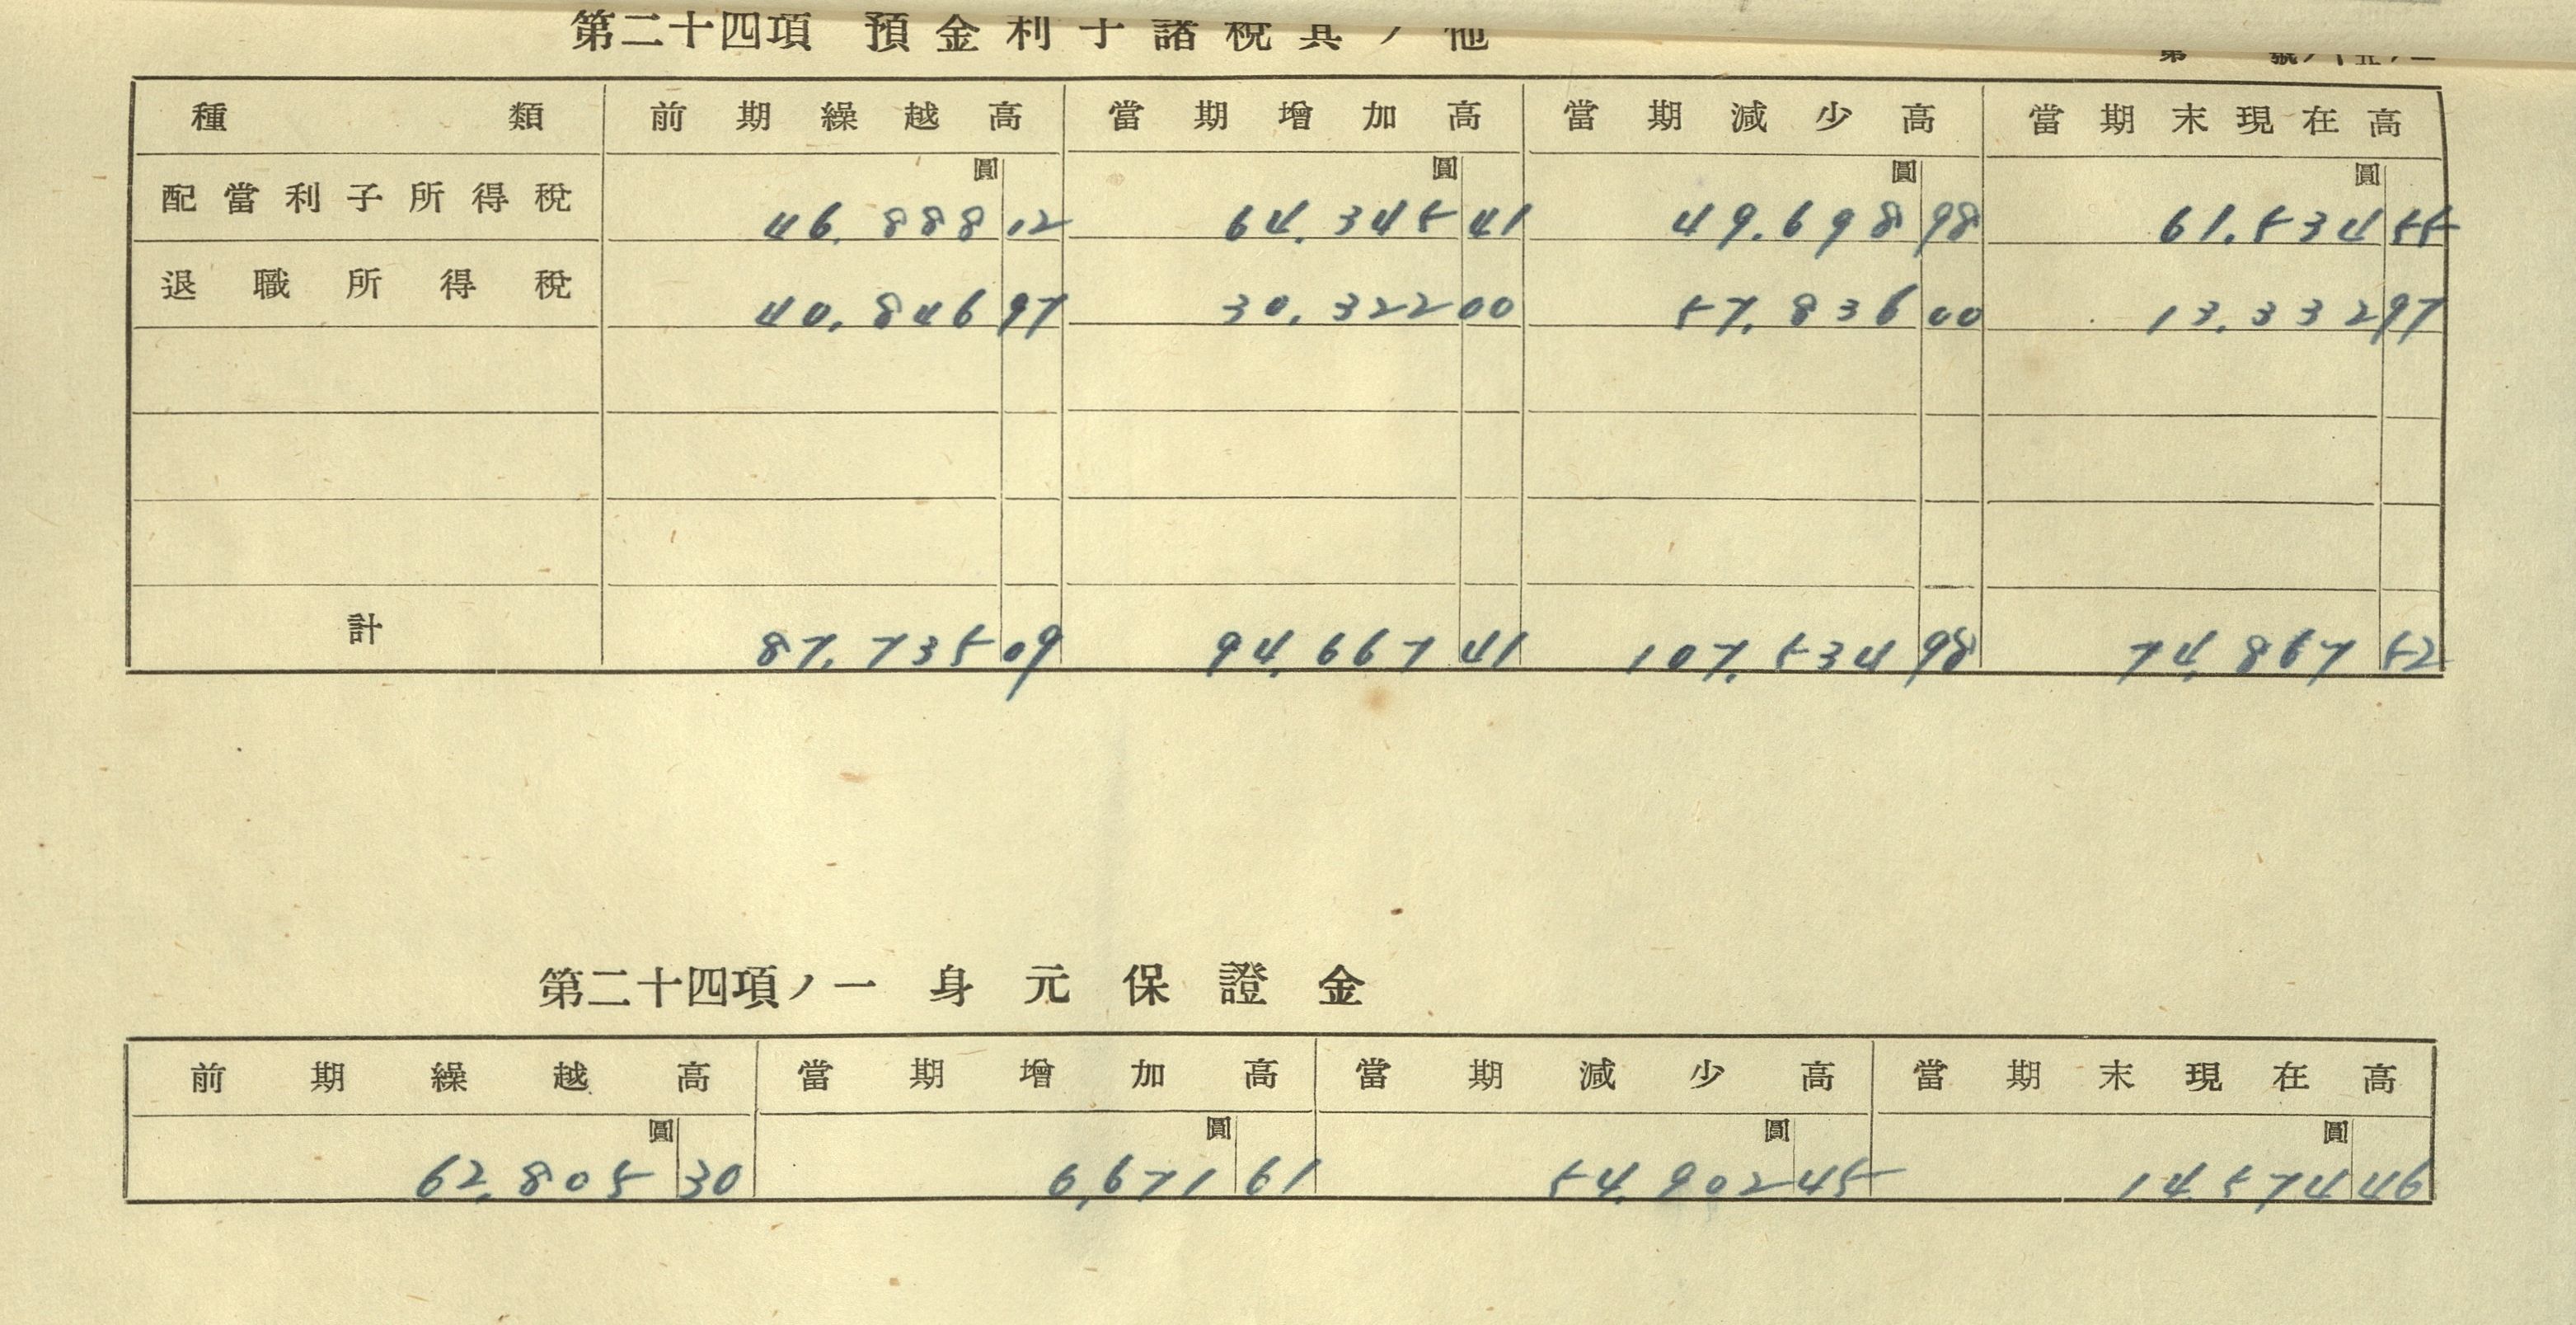 第二十四項 預金利子諸税其ノ他
種類 前期繰越高 當期増加高 當期減少高 當期末現在高
圓 圓 圓 圓
配當利子所得税 46,888 12 64,345 41 49,698 98 61,534 55
退職所得税 40,846 97 30,322 00 57,836 00 13,332 97
計 87,735 09 94,667 41 107,534 98 74,867 52
第二十四項ノ一 身元保證金
前期繰越高 當期増加高 當期減少高 當期末現在高
圓 圓 圓 圓
62,805 30 6,671 61 54,902 45 14,574 46